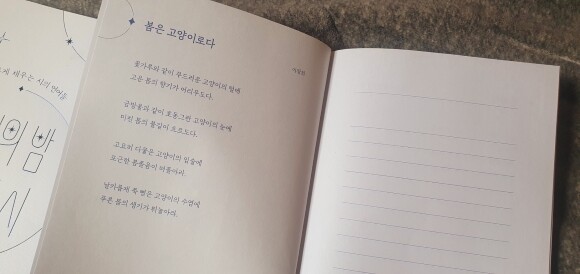 봄은 고양이로다
이장희
꽃가루와 같이 부드러운 고양이의 털에
고운 봄의 향기가 어리우도다.
금방울과 같이 호동그란 고양이의 눈에
미친 봄의 불길이 흐르도다.
고요히 다물은 고양이의 입술에
포근한 봄졸음이 떠돌아라.
날카롭게 쭉 뻗은 고양이의 수염에
푸른 봄의 생기가 뛰놀아라.
채우는 시의 언어들
의 밤
시